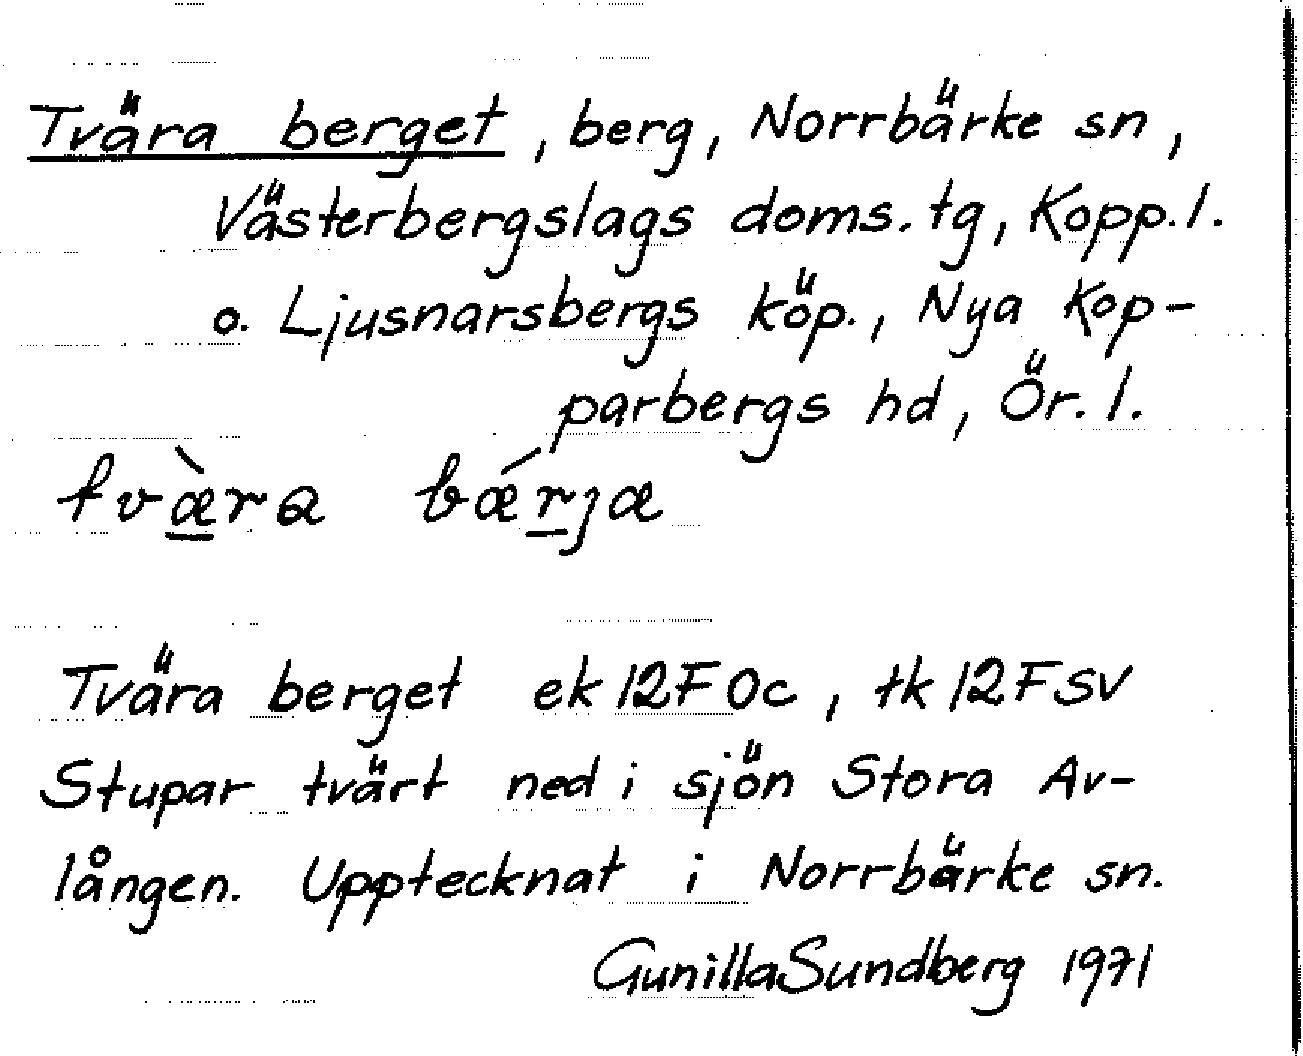 Tvära berget, berg, Norrbärke sn,
Västerbergslags doms. tg, Kopp. l.
o. Ljusnarsbergs köp., Nya Kop-
parbergs hd, Ör. l.
tvæ̀ra bǽrjæ
Tvära berget ek 12F 0c, tk 12F SV
Stupar tvärt ned i sjön Stora Av-
lången. Upptecknat i Norrbärke sn.
Gunilla Sundberg 1971